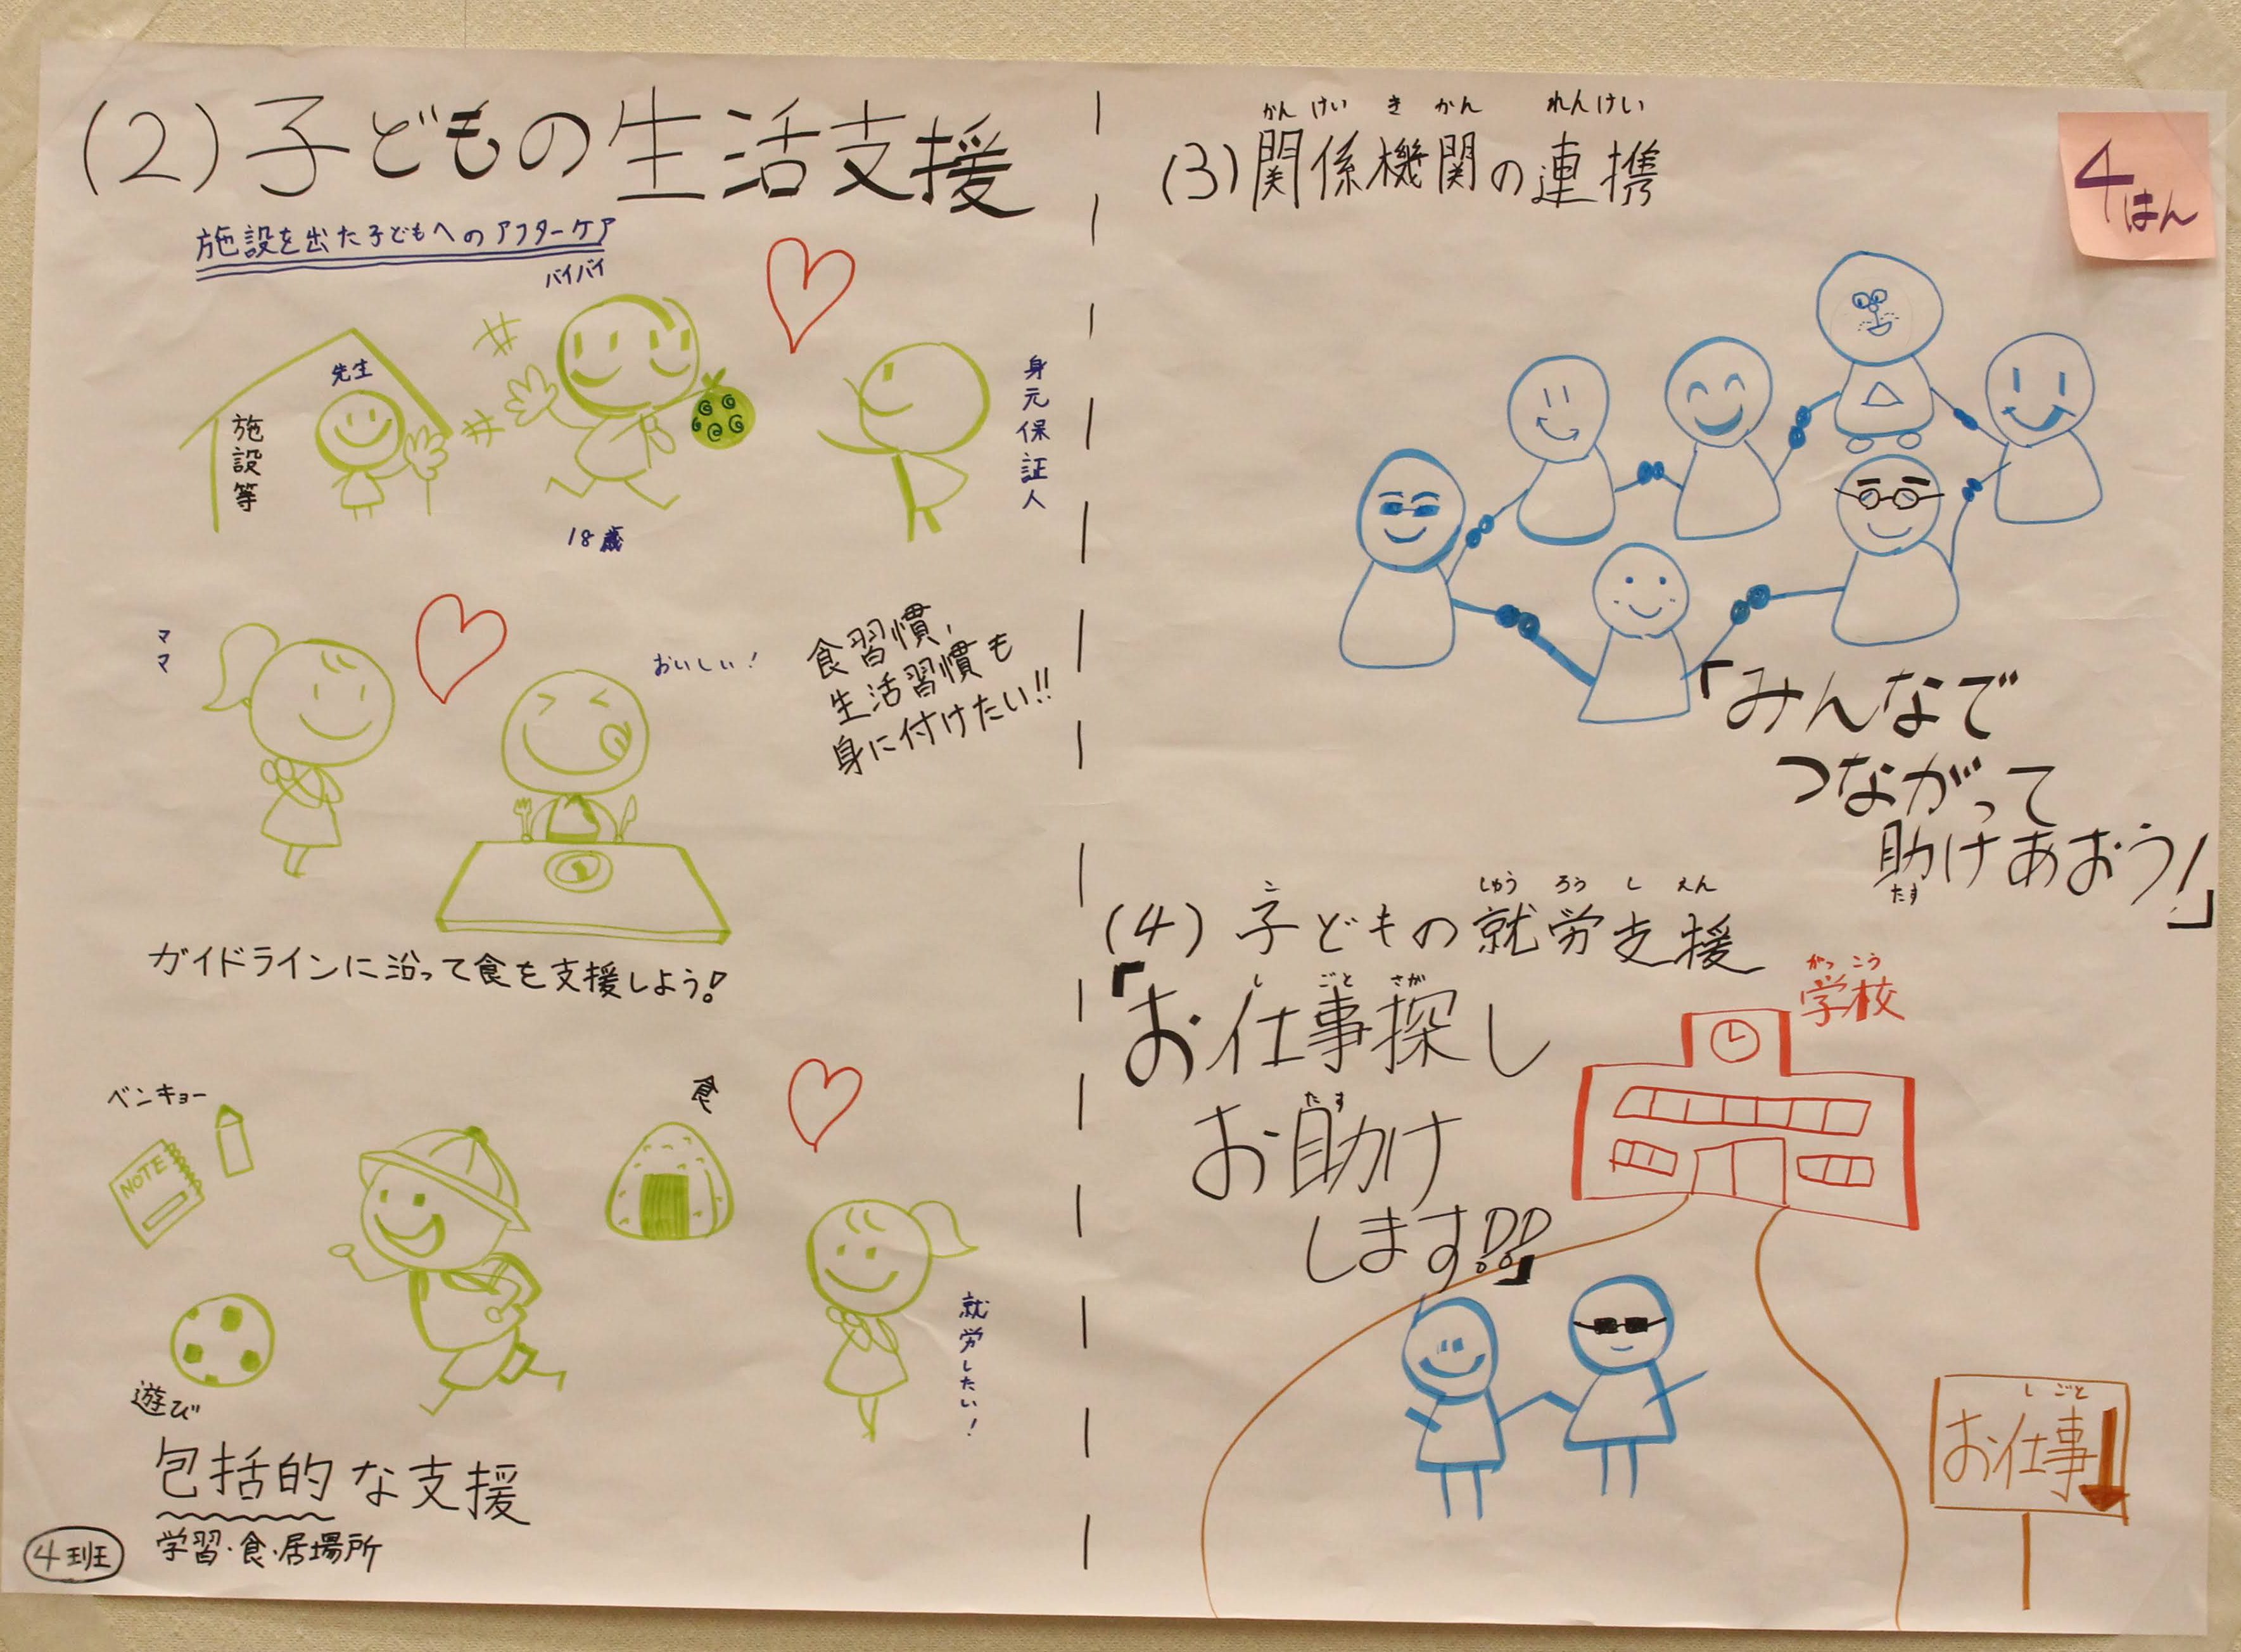 (2)子どもの生活支援
施設を出た子どもへのアフターケア
バイバイ
先生
施設等
18歳
身元保証人
ママ
おいしい!
食習慣,
生活習慣も
身に付けたい!!
ガイドラインに沿って食を支援しよう!
ベンキョー
NOTE
食
遊び
就労したい!
包括的な支援
学習・食・居場所
4班
4はん
かんけいきかん れんけい
(3)関係機関の連携
「みんなで
つながって
助けあおう!」
たす
こ しゅうろうしえん
(4)子どもの就労支援
しごとさが
「お仕事探し
たす
お助け
します!!」
がっこう
学校
しごと
お仕事